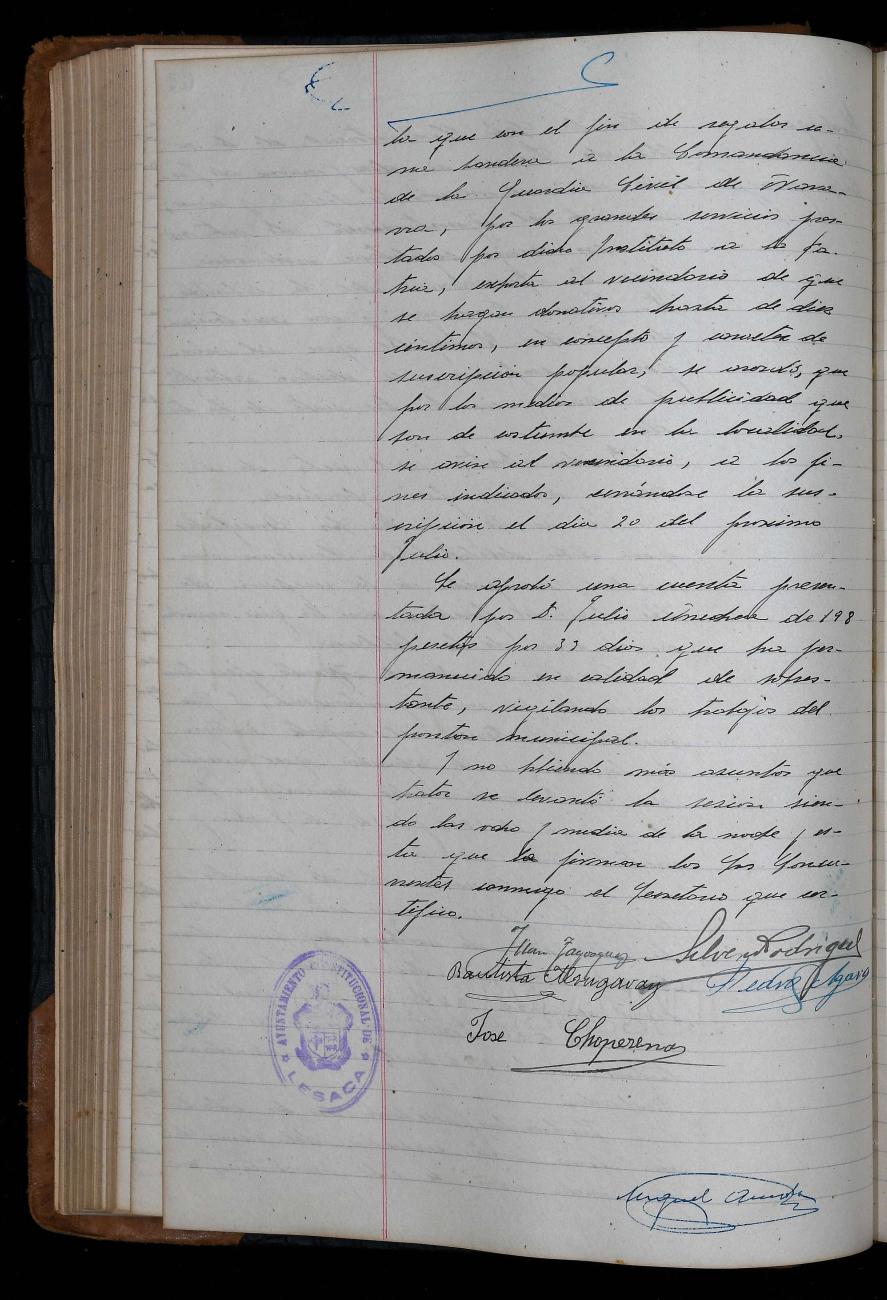 la que con el fin de regalar u-
na bandera a la Comandancia
de la Guardia Civil de Nava-
rra, por los grandes servicios pres-
tados por dicho Instituto a la Pa-
tria, exhorta al vecindario de que
se hagan donativos hasta de diez
céntimos, en concepto y caracter de
suscripción popular, se acordó, que
por los medios de publicidad que
son de costumbre en la localidad,
se avise al vecindario, a los fi-
nes indicados, cerrándose la sus-
cripción el dia 20 del proximo
Julio.
Se aprobó una cuenta presen-
tada por D. Julio de 198
pesetas por 33 dias que ha per-
manecido en calidad de sobres-
tante, vigilando los trabajos del
ponton municipal.
Y no habiendo más asuntos que
tratar se levantó la sesion sien-
do las ocho y media de la noche y es-
ta que la firman los Srs Concu-
rrentes conmigo el Secretario que cer-
tifico.
Juan Silver Rodriguez
Bautista Pedro
Jose Choperena
AYUNTAMIENTO CONSTITUCIONAL DE
LESACA
Miguel